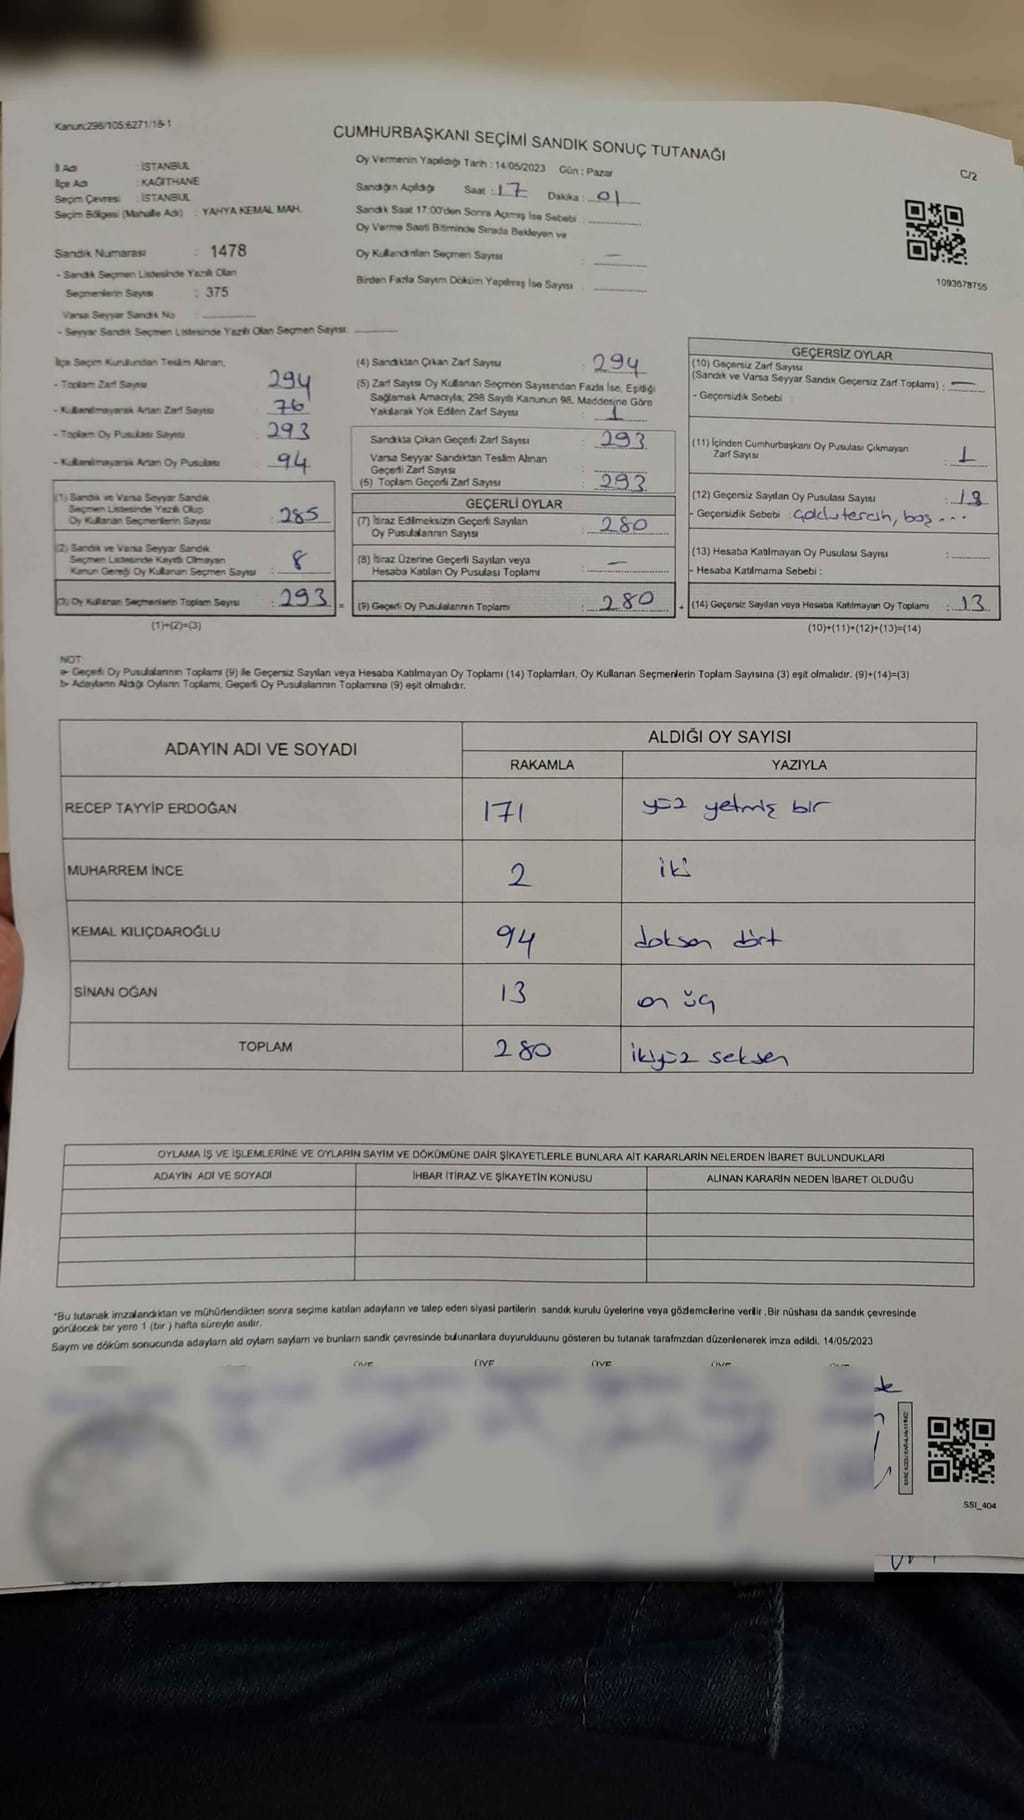 Kanun:298/105;6271/18-1
CUMHURBAŞKANI SEÇİMİ SANDIK SONUÇ TUTANAĞI
C/2
İl Adı : İSTANBUL
İlçe Adı : KAĞITHANE
Seçim Çevresi : İSTANBUL
Seçim Bölgesi (Mahalle Adı) : YAHYA KEMAL MAH.
Oy Vermenin Yapıldığı Tarih : 14/05/2023 Gün : Pazar
Sandığın Açıldığı Saat : 17 Dakika : 01
Sandık Saat 17:00'den Sonra Açımış İse Sebebi :
Oy Verme Saati Bitiminde Sırada Bekleyen ve
Oy Kullandırılan Seçmen Sayısı : —
Birden Fazla Sayım Döküm Yapılmış İse Sayısı :
1093678755
Sandık Numarası : 1478
- Sandık Seçmen Listesinde Yazılı Olan
Seçmenlerin Sayısı : 375
Varsa Seyyar Sandık No :
- Seyyar Sandık Seçmen Listesinde Yazılı Olan Seçmen Sayısı:
İlçe Seçim Kurulundan Teslim Alınan;
- Toplam Zarf Sayısı : 294
- Kullanılmayarak Artan Zarf Sayısı : 76
- Toplam Oy Pusulası Sayısı : 293
- Kullanılmayarak Artan Oy Pusulası : 94
(1) Sandık ve Varsa Seyyar Sandık
Seçmen Listesinde Yazılı Olup
Oy Kullanan Seçmenlerin Sayısı : 285
(2) Sandık ve Varsa Seyyar Sandık
Seçmen Listesinde Kayıtlı Olmayan
Kanun Gereği Oy Kullanan Seçmen Sayısı : 8
(3) Oy Kullanan Seçmenlerin Toplam Sayısı : 293 =
(1)+(2)=(3)
(4) Sandıktan Çıkan Zarf Sayısı : 294
(5) Zarf Sayısı Oy Kullanan Seçmen Sayısından Fazla İse, Eşitliği
Sağlamak Amacıyla; 298 Sayılı Kanunun 98. Maddesine Göre
Yakılarak Yok Edilen Zarf Sayısı : 1
Sandıkta Çıkan Geçerli Zarf Sayısı : 293
Varsa Seyyar Sandıktan Teslim Alınan
Geçerli Zarf Sayısı :
(6) Toplam Geçerli Zarf Sayısı : 293
GEÇERLİ OYLAR
(7) İtiraz Edilmeksizin Geçerli Sayılan
Oy Pusulalarının Sayısı : 280
(8) İtiraz Üzerine Geçerli Sayılan veya
Hesaba Katılan Oy Pusulası Toplamı : —
(9) Geçerli Oy Pusulalarının Toplamı : 280 +
GEÇERSİZ OYLAR
(10) Geçersiz Zarf Sayısı
(Sandık ve Varsa Seyyar Sandık Geçersiz Zarf Toplamı) : —
- Geçersizlik Sebebi :
(11) İçinden Cumhurbaşkanı Oy Pusulası Çıkmayan
Zarf Sayısı : 1
(12) Geçersiz Sayılan Oy Pusulası Sayısı :
- Geçersizlik Sebebi : Çoklu tercih, boş ...
(13) Hesaba Katılmayan Oy Pusulası Sayısı :
- Hesaba Katılmama Sebebi :
(14) Geçersiz Sayılan veya Hesaba Katılmayan Oy Toplamı : 13
(10)+(11)+(12)+(13)=(14)
NOT
a- Geçerli Oy Pusulalarının Toplamı (9) ile Geçersiz Sayılan veya Hesaba Katılmayan Oy Toplamı (14) Toplamları, Oy Kullanan Seçmenlerin Toplam Sayısına (3) eşit olmalıdır. (9)+(14)=(3)
b- Adayların Aldığı Oyların Toplamı, Geçerli Oy Pusulalarının Toplamına (9) eşit olmalıdır.
ADAYIN ADI VE SOYADI
ALDIĞI OY SAYISI
RAKAMLA YAZIYLA
RECEP TAYYİP ERDOĞAN 171 yüz yetmiş bir
MUHARREM İNCE 2 iki
KEMAL KILIÇDAROĞLU 94 doksan dört
SİNAN OĞAN 13 on üç
TOPLAM 280 ikiyüz seksen
OYLAMA İŞ VE İŞLEMLERİNE VE OYLARIN SAYIM VE DÖKÜMÜNE DAİR ŞİKAYETLERLE BUNLARA AİT KARARLARIN NELERDEN İBARET BULUNDUKLARI
ADAYIN ADI VE SOYADI İHBAR İTİRAZ VE ŞİKAYETİN KONUSU ALINAN KARARIN NEDEN İBARET OLDUĞU
*Bu tutanak imzalandıktan ve mühürlendikten sonra seçime katılan adayların ve talep eden siyasi partilerin sandık kurulu üyelerine veya gözlemcilerine verilir .Bir nüshası da sandık çevresinde
görülecek bir yere 1 (bir ) hafta süreyle asılır.
Saym ve döküm sonucunda adaylarn ald oylam saylam ve bunlarn sandk çevresinde bulunanlara duyurulduunu gösteren bu tutanak tarafmzdan düzenlenerek imza edildi. 14/05/2023
ÜYE ÜYE ÜYE ÜYE
SSI_404